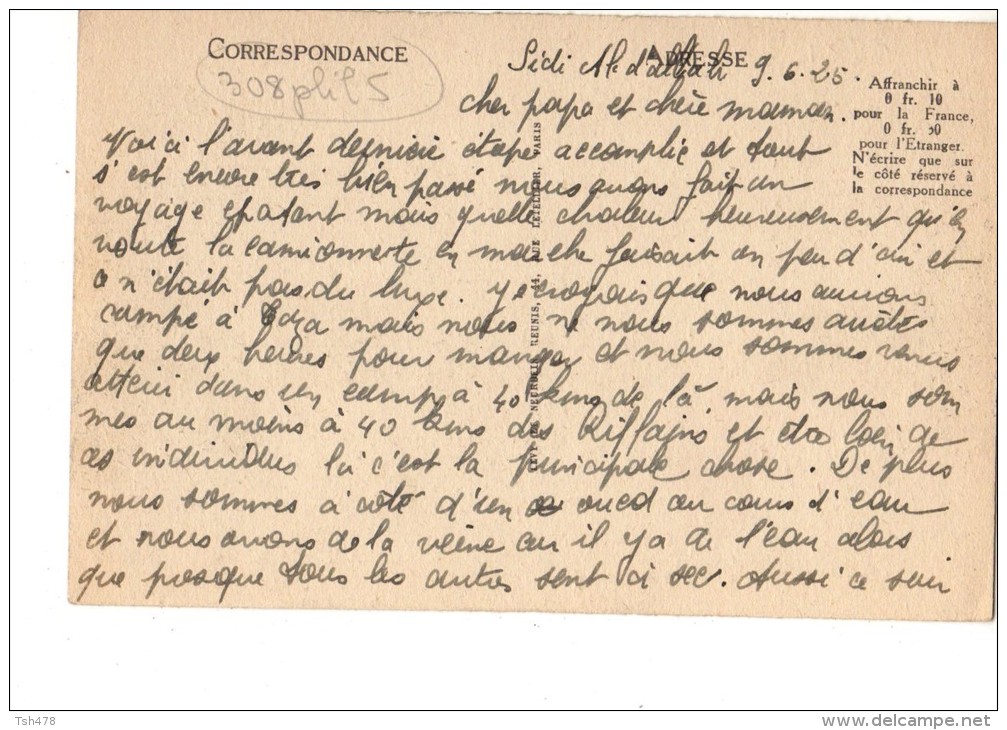 CORRESPONDANCE
ADRESSE
308phil5
Sidi Abdallah 9.6.25.
Affranchir à
0 fr. 10
pour la France,
0 fr. 50
pour l'Etranger.
N'écrire que sur
le côté réservé à
la correspondance
cher papa et chère maman.
Voici l'avant dernière étape accomplie et tout
s'est encore très bien passé nous avons fait un
voyage epatant mais quelle chaleur heureusement qu'en
route la camionnette en marche faisait un peu d'air et
ce n'était pas du luxe. Je croyais que nous aurions
campé à Taza mais nous ne nous sommes arrêtés
que deux heures pour manger et nous sommes venus
atterrir dans un camp à 40 kms de là mais nous som
mes au moins à 40 kms des Riffains et être loin de
ces individus là c'est la principale chose. De plus
nous sommes à côté d'un oued ou cours d'eau
et nous avons de la veine car il y a de l'eau alors
que presque tous les autres sont à sec. Aussi ce soir
LEVY ET NEURDEIN REUNIS, 44, RUE LETELLIER, PARIS
Tsh478
www.delcampe.net